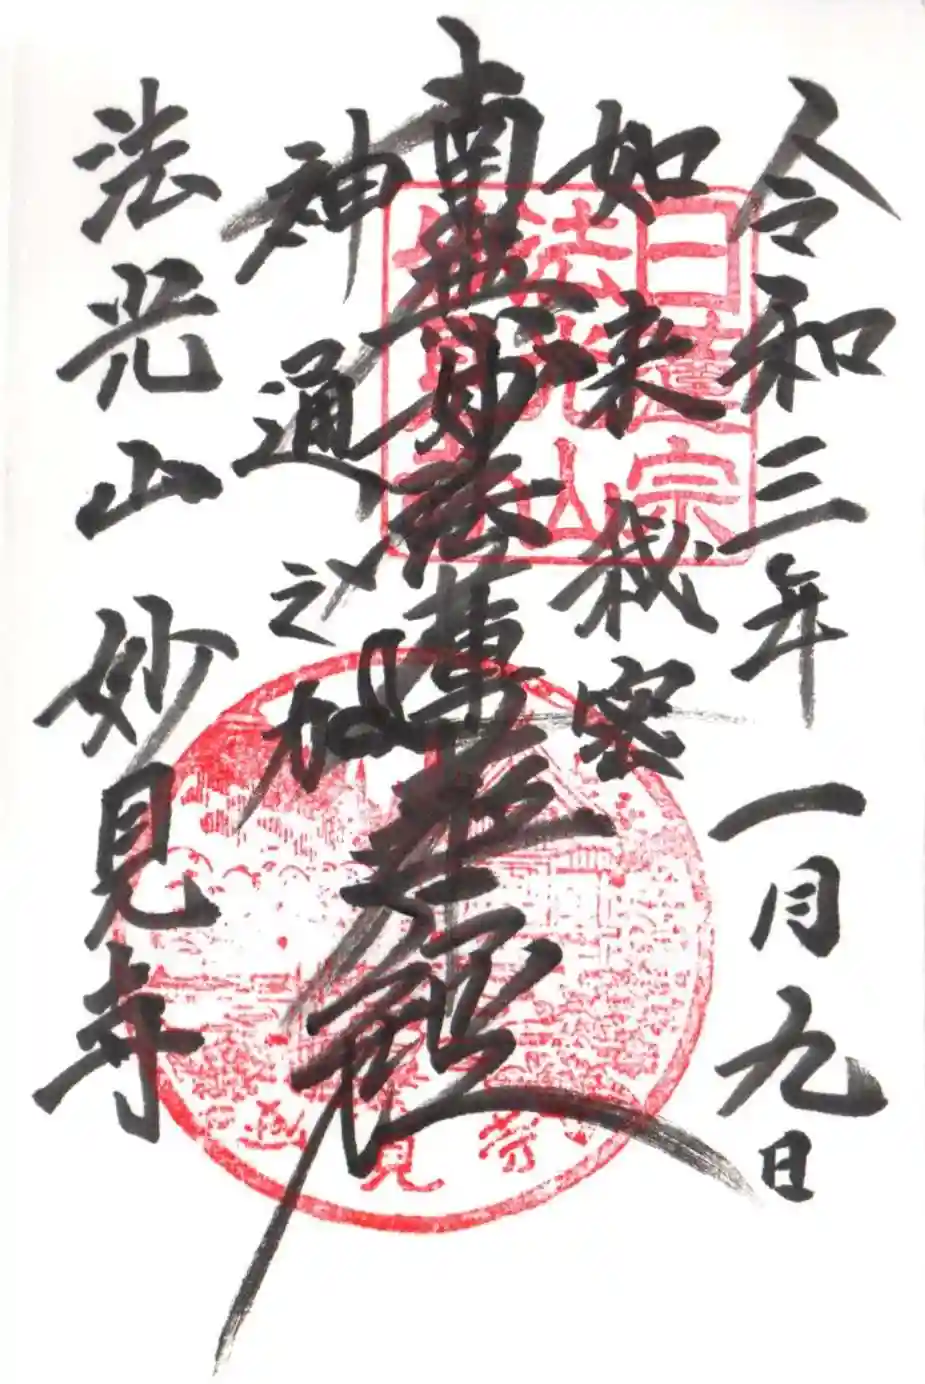 令和三年 一月九日
如来秘密
南無妙法蓮華經
神通之力
法光山 妙見寺
日蓮宗
法光山
妙見寺